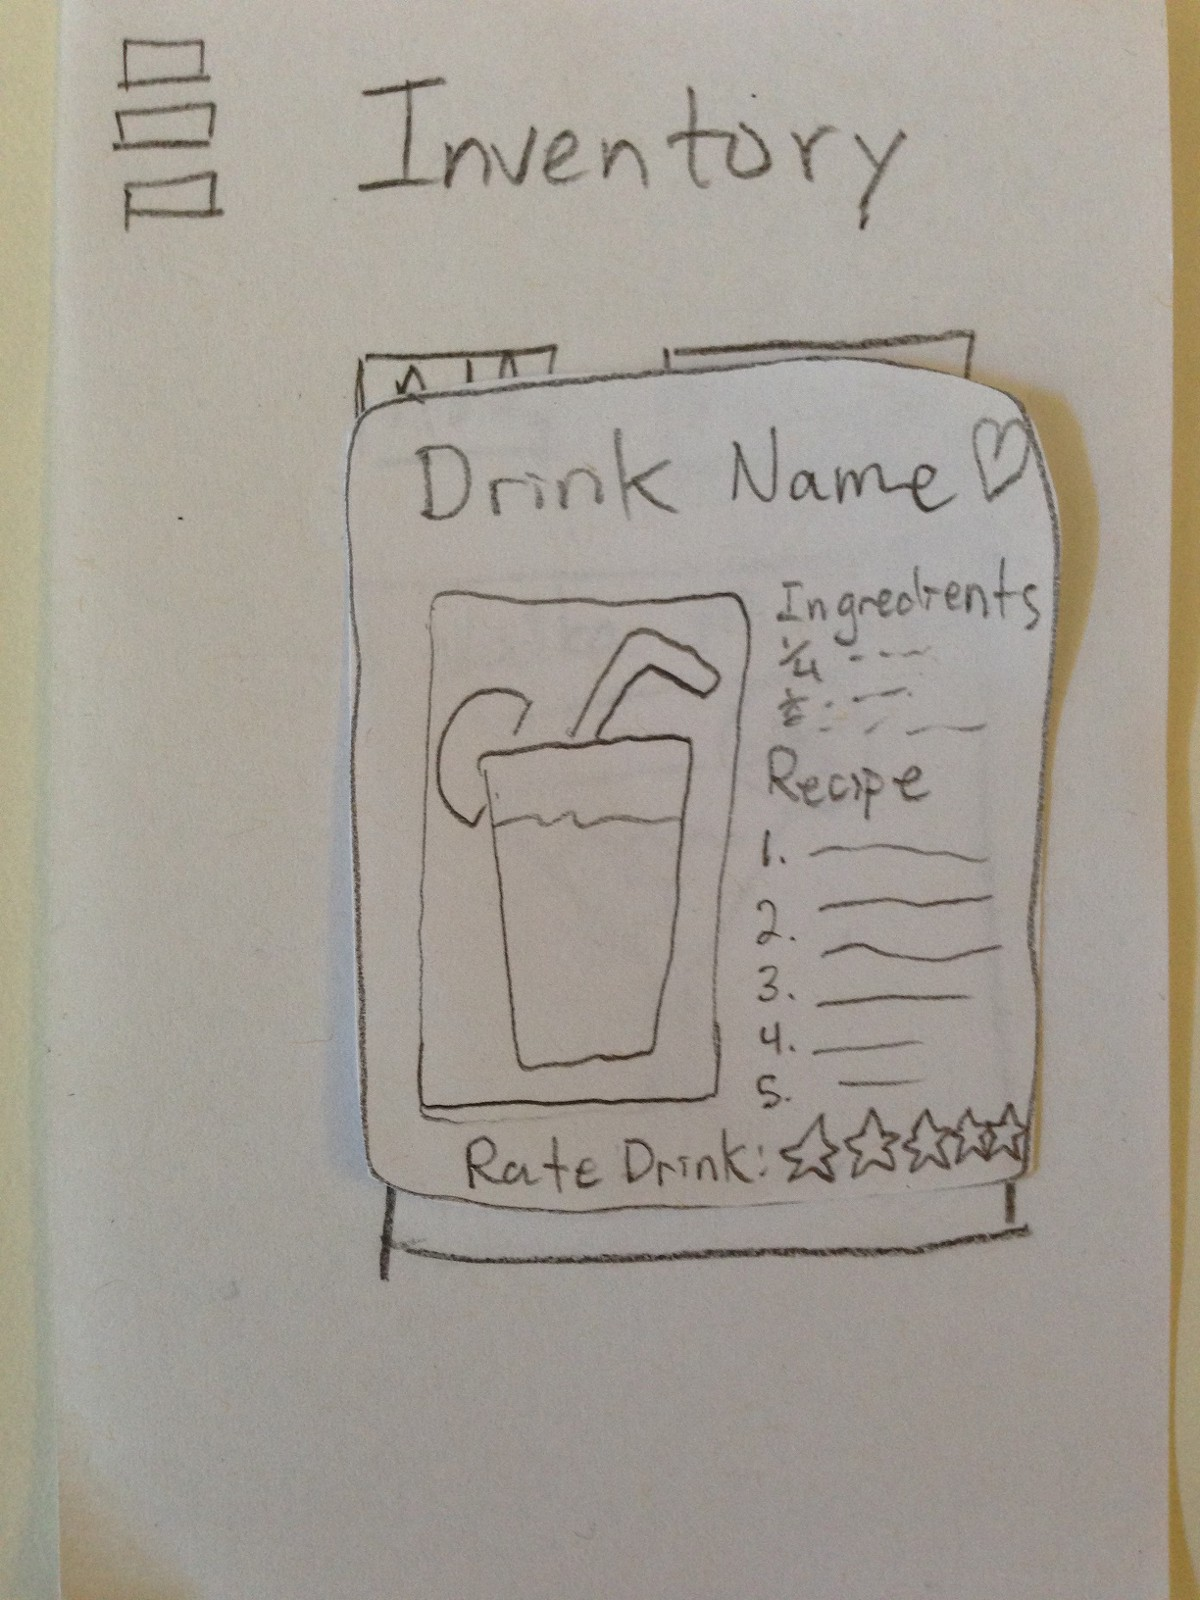 Inventory
Drink Name
Ingredients
1/4
Recipe
1.
2.
3.
4.
5.
Rate Drink: